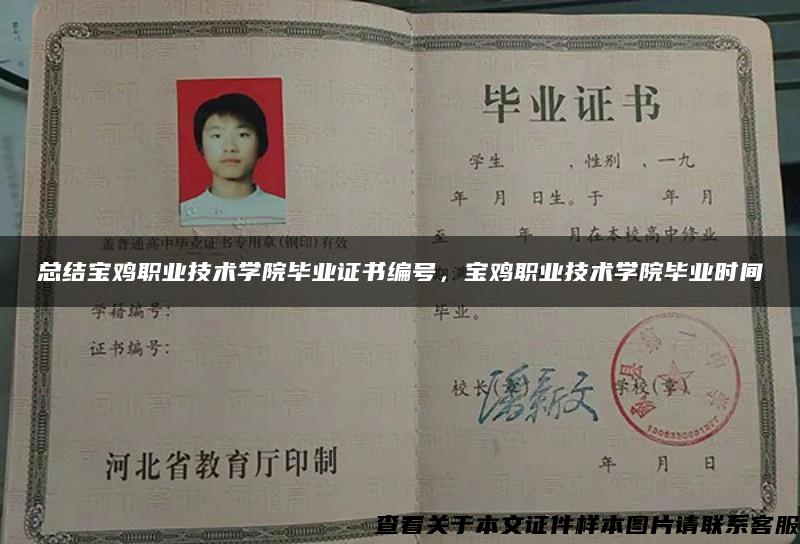 毕业证书
学生 ,性别 ,一九
年 月 日生。于 年 月
至 年 月在本校高中修业
盖普通高中毕业证书专用章(钢印)有效
总结宝鸡职业技术学院毕业证书编号，宝鸡职业技术学院毕业时间
学籍编号:
毕业。
证书编号:
校长(章)
学校(章)
潘新文
河北省教育厅印制
年 月 日
查看关于本文证件样本图片请联系客服